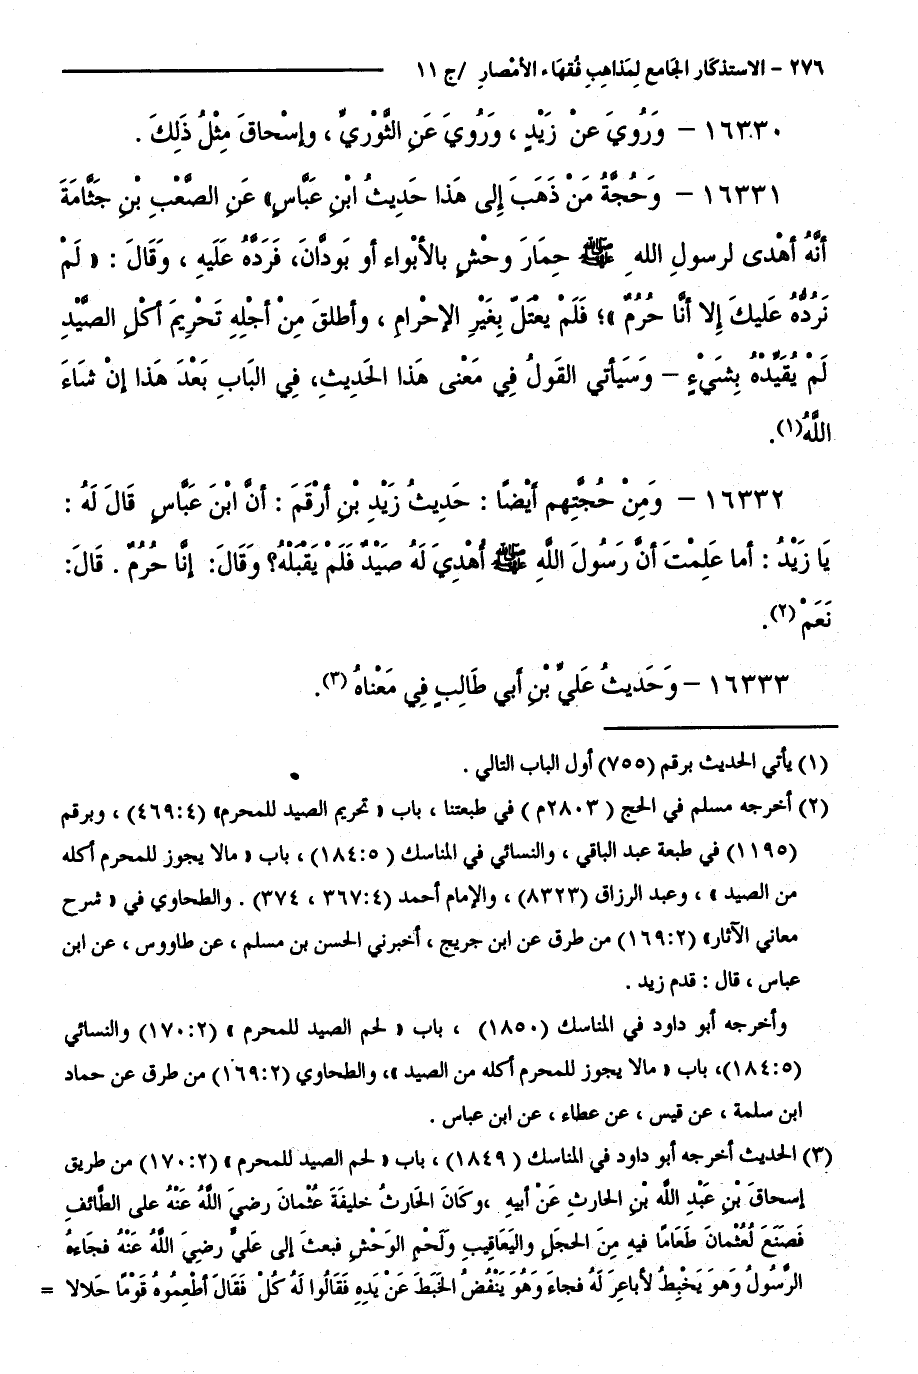 ٢٧٦ - الاستذكار الجامع لِمَذاهِبِ فُقهاء الأمْصارِ /ج ١١
١٦٣٣٠ – وَرُويَ عَنْ زَيْدٍ ، وَرُويَ عَنِ الثَّوْريِّ ، وإسْحاقَ مِثْلُ ذَلِكَ .
١٦٣٣١ – وَحُجَّةُ مَنْ ذَهَبَ إِلى هَذا حَديثُ ابْنِ عَبَّاسٍ» عَنِ الصَّعْبِ بْنِ جَثَّامَةَ
أنَّهُ أهْدى لرسولِ اللهِ ﷺ حِمَارَ وحْشٍ بالأبْواء أو بَودَّانَ، فَرَدَّهُ عَلَيهِ ، وَقَالَ : « لَمْ
نَرُدُّهُ عَليكَ إلا أنَّا حُرُمٌ »؛ فَلَمْ يعْتَلّ بِغَيْرِ الإحْرامِ ، وأطلقَ مِنْ أجْلِهِ تَحْريمَ أكْلِ الصيَّدِ
لَمْ يُقَيِّدْهُ بِشَيءٍ – وَسَيأتي القَولُ فِي مَعْنى هَذا الحَديثِ، فِي البَابِ بَعْدَ هَذا إنْ شَاءَ
اللَّهُ(١).
١٦٣٣٢ – وَمِنْ حُجَّتِهم أيْضًا : حَديثُ زَيْدِ بْنِ أرْقَمَ : أنَّ ابْنَ عَبَّاسٍ قَالَ لَهُ :
يَا زَيْدُ : أما عَلِمْتَ أنَّ رَسُولَ اللَّهِ ﷺ أُهْدِيَ لَهُ صَيْدٌ فَلَمْ يَقْبَلْهُ؟ وَقَالَ: إنَّا حُرُمٌ . قَالَ:
نَعَمْ (٢).
١٦٣٣٣ – وَحَديثُ عَليِّ بْنِ أبي طَالِبٍ فِي مَعْناهُ (٣).
(١) يأتي الحديث برقم (٧٥٥) أول الباب التالي .
(٢) أخرجه مسلم في الحج ( ٢٨٠٣م ) في طبعتنا ، باب « تحريم الصيد للمحرم» (٤:‏٤٦٩) ، وبرقم
(١١٩٥) في طبعة عبد الباقي ، والنسائي في المناسك (٥:‏١٨٤) ، باب « مالا يجوز للمحرم أكله
من الصيد » ، وعبد الرزاق (٨٣٢٣) ، والإمام أحمد (٤:‏٣٦٧ ، ٣٧٤) . والطحاوي في « شرح
معاني الآثار» (٢:‏١٦٩) من طرق عن ابن جريج ، أخبرني الحسن بن مسلم ، عن طاووس ، عن ابن
عباس ، قال : قدم زيد .
وأخرجه أبو داود في المناسك (١٨٥٠) ، باب « لحم الصيد للمحرم » (٢:‏١٧٠) والنسائي
(٥:‏١٨٤)، باب « مالا يجوز للمحرم أكله من الصيد »، والطحاوي (٢:‏١٦٩) من طرق عن حماد
ابن سلمة ، عن قيس ، عن عطاء ، عن ابن عباس .
(٣) الحديث أخرجه أبو داود في المناسك ( ١٨٤٩) ، باب « لحم الصيد للمحرم » (٢:‏١٧٠) من طريق
إسحاقَ بْنِ عَبْدِ اللَّه بْنِ الحارثِ عَنْ أبيهِ ،وكَانَ الحَارثُ خليفَةَ عُثْمانَ رضيَ اللَّهُ عَنْهُ على الطَّائفِ
فَصَنَعَ لُعُثْمانَ طَعَامًا فيهِ مِنَ الحجَلِ واليَعَاقيبِ وَلَحْمِ الوَحْشِ فبعثَ إلى عَليٍّ رضيَ اللَّهُ عَنْهُ فجاءهُ
الرَّسُولُ وَهوَ يَخْبِطُ لأباعِرَ لَهُ فجاءَ وَهُوَ يَنْفُضُ الخَبَطَ عَنْ يَدِهِ فَقَالُوا لَهُ كُلْ فَقَالَ أطْعِمُوهُ قَوْمًا حَلالا =